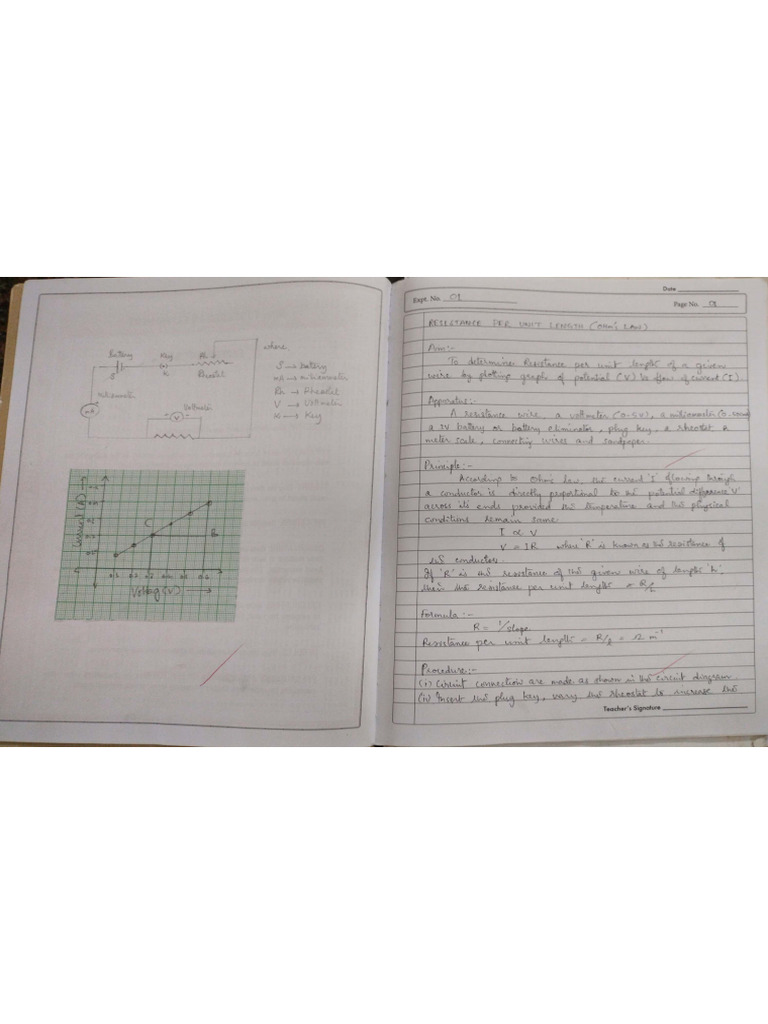 where,
Battery Key Rh
S K Rheostat
S → battery
mA → miliammeter
Rh → Rheostat
V → Voltmeter
K → Key
miliammeter
mA
Voltmeter
V
Current (A) →
C
B
0.1 0.2
Voltage(V) →
Date
Expt. No. 01
Page No. 01
RESISTANCE PER UNIT LENGTH (OHM'S LAW)
Aim:-
To determine Resistance per unit length of a given
wire by ploting graph of potential (V) Vs flow of current (I).
Apparatus:-
A resistance wire, a voltmeter (0-5V), a miliammeter
a 2V battery or battery eliminator, plug key, a rheostat &
meter scale, connecting wires and sandpaper.
Principle:-
According to Ohms law, the current 'I' flowing through
a conductor is directly proportional to the potential difference 'V'
across its ends provided the temperature and the physical
conditions remain same.
I ∝ V
V = IR where 'R' is known as the resistance of
conductor.
If 'R' is the resistance of the given wire of length
then the resistance per unit length = R/L
Formula:-
R = 1/slope
Resistance per unit length = R/L = Ω m⁻¹
Procedure:-
(i) Circuit connection are made as shown in the circuit diagram
(ii) Insert the plug key, vary the rheostat to increase the
Teacher's Signature